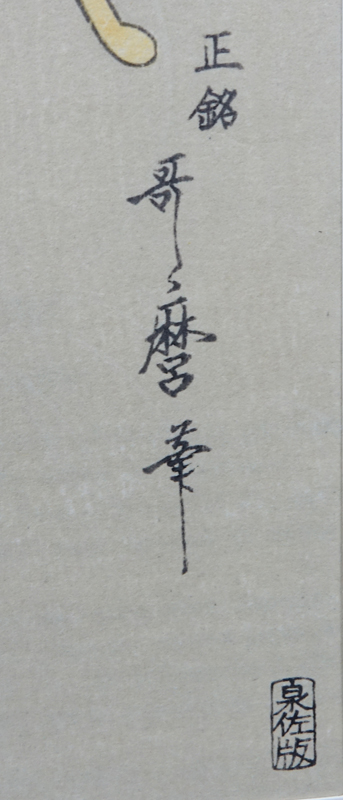 正銘
哥麿筆
泉佐版